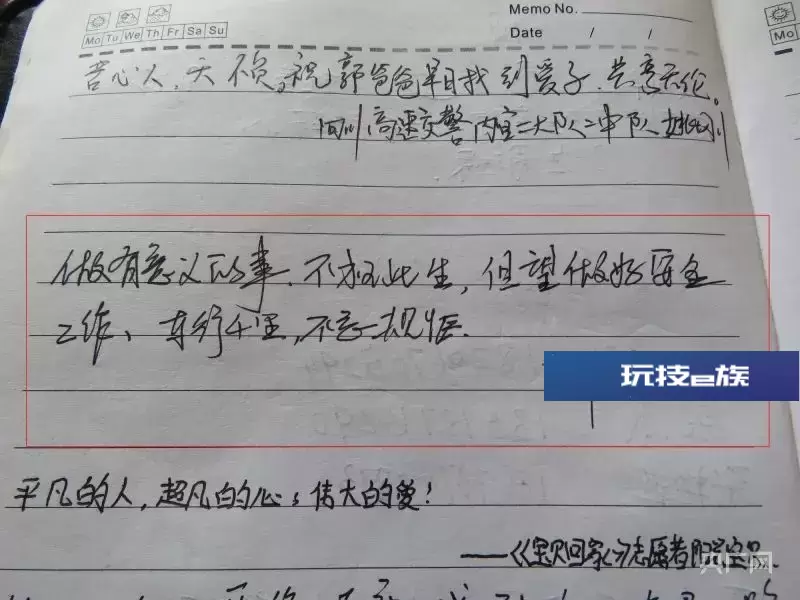 Memo No.
Mo Tu We Th Fr Sa Su
Date / /
Mo
苦心人,天不负。祝郭爸爸早日找到爱子.共享天伦。
四川高速交警内宜二大队二中队
做有意义的事.不枉此生,但望做好安全
工作、车行千里,不忘
玩技e族
平凡的人,超凡的心;伟大的爱!
——《宝贝回家》志愿者
央广网